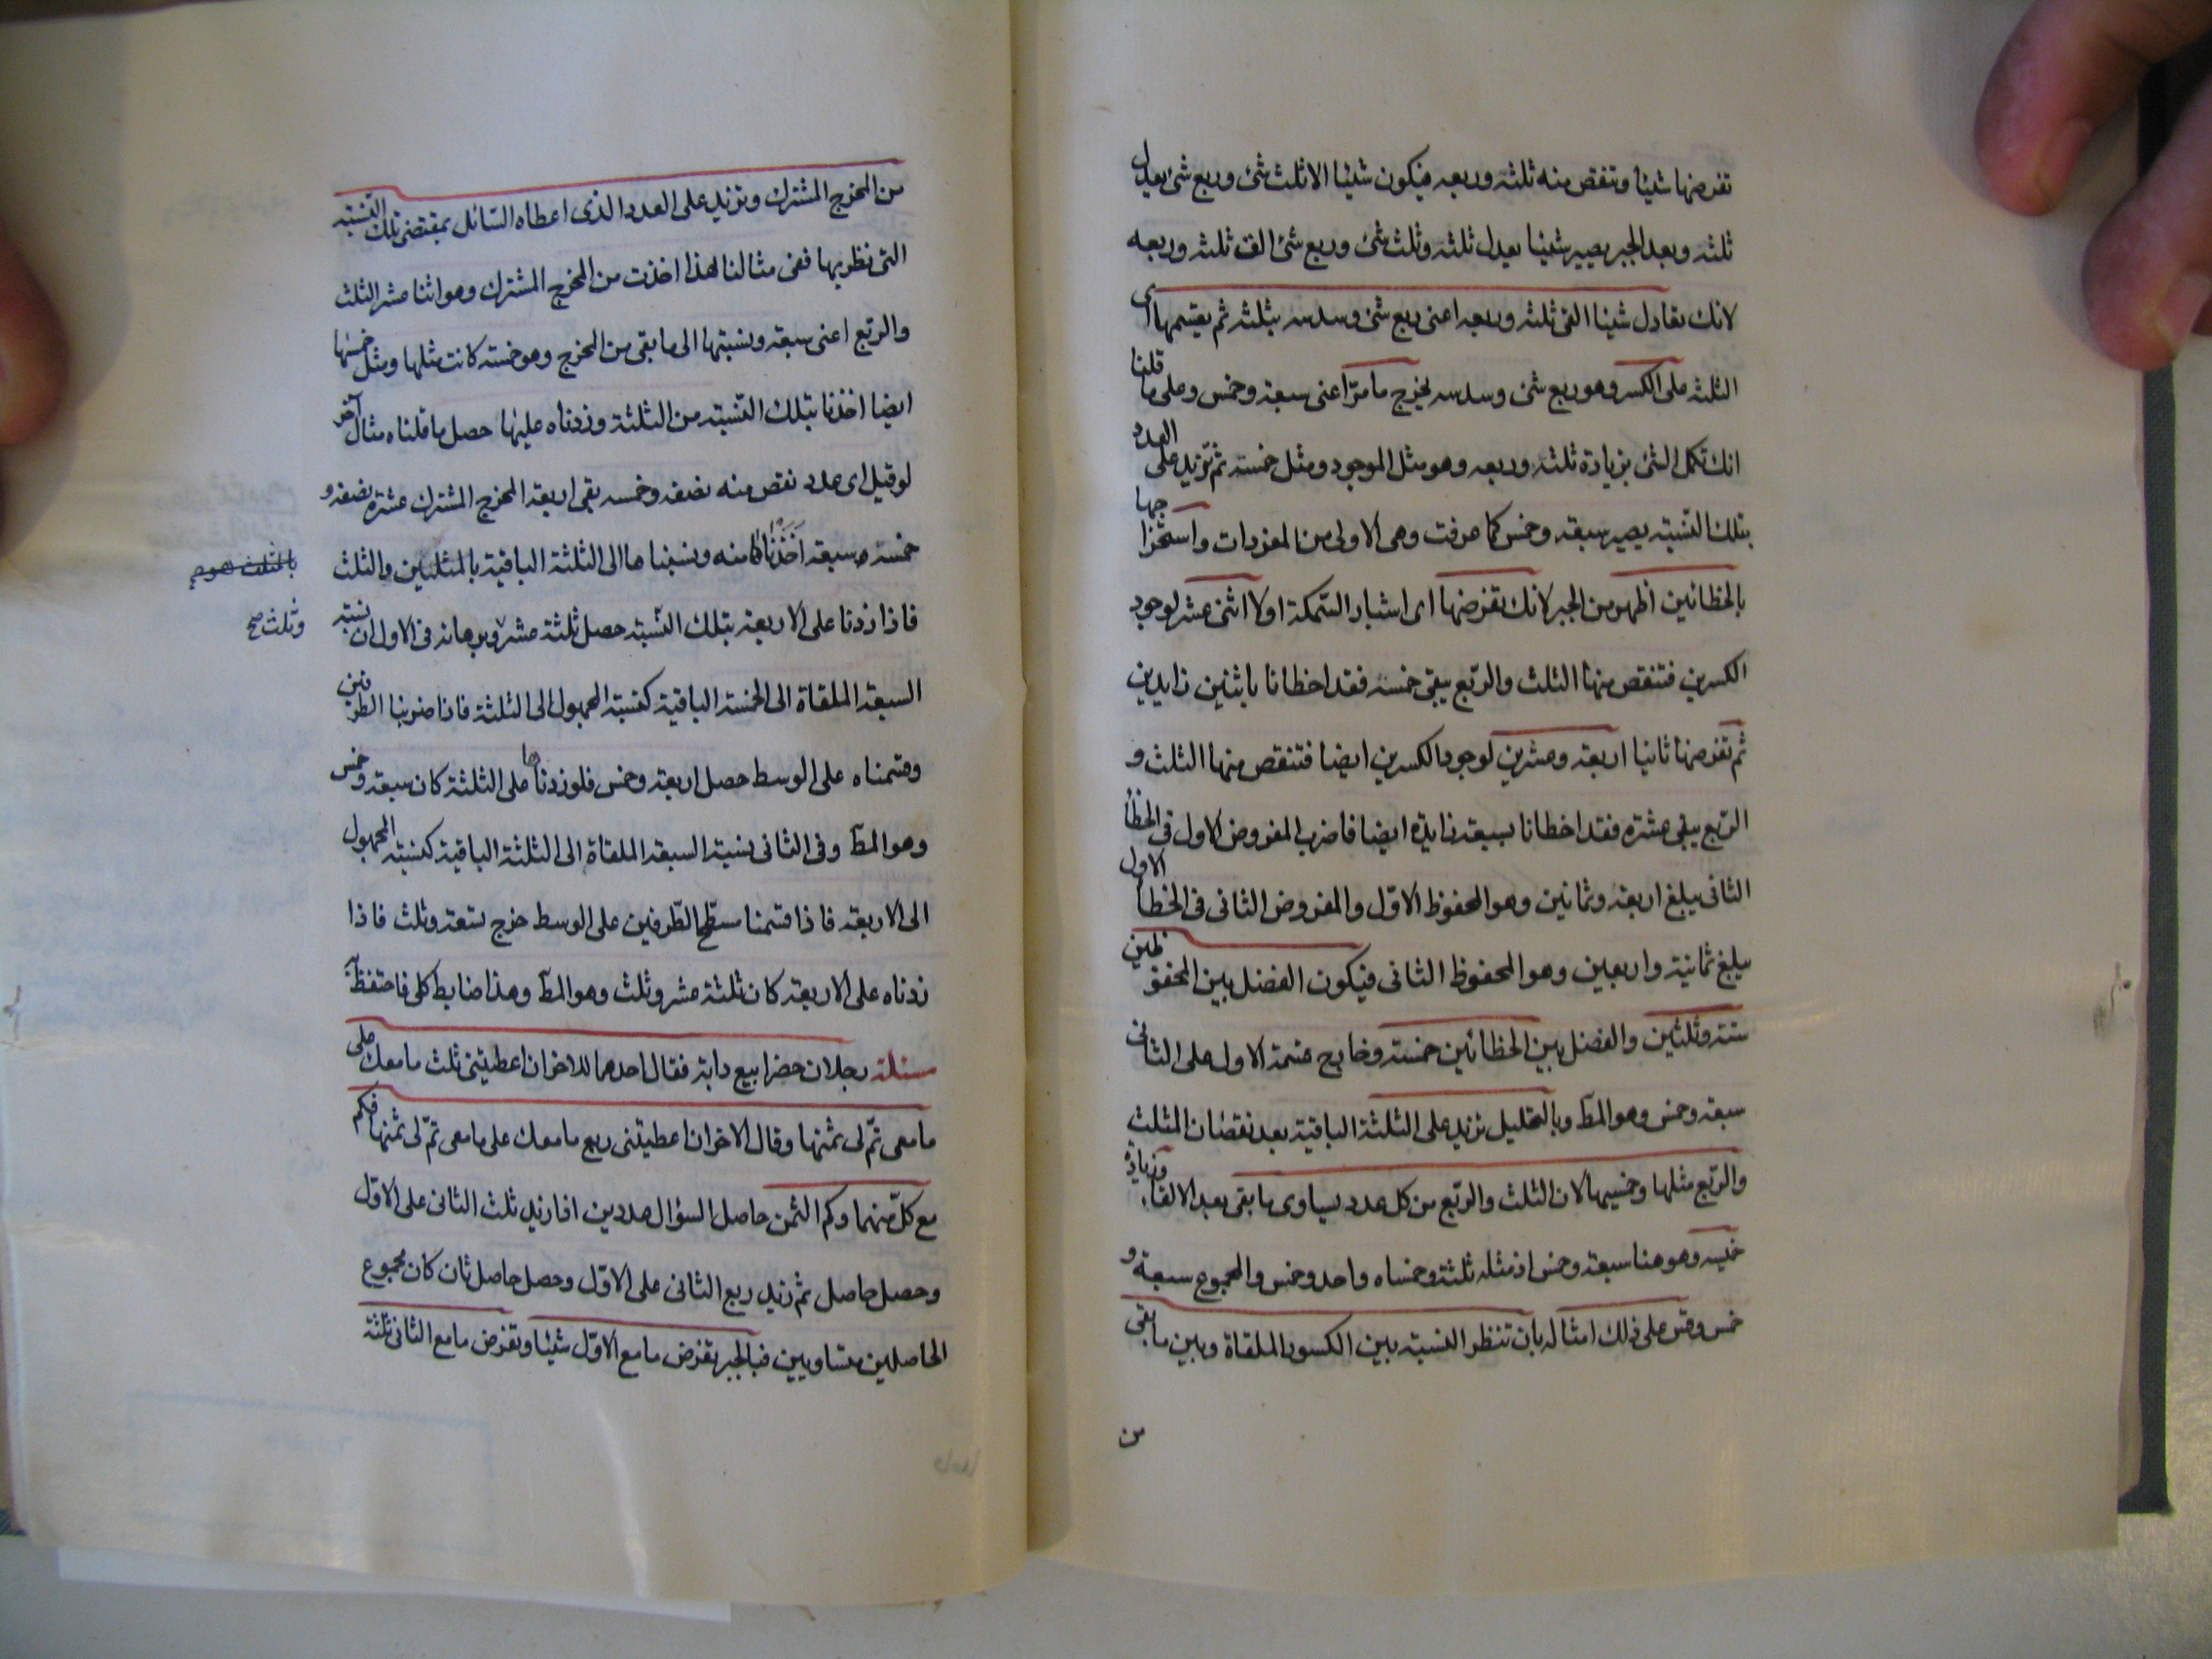 تفرضها شيئا وتنقص منه ثلثه وربعه فيكون شيئا الا ثلث شئ وربع شئ يعدل
ثلثة وبعد الجبر يصير شيئا يعدل ثلثة وثلث شئ وربع شئ الق ثلثه وربعه
لانك تعادل شيئا القى ثلثه وربعه اعنى ربع شئ وسدسه بثلثة ثم يقسمها اى
الثلثة على الكسر وهو ربع شئ وسدسه يخرج ما مرّ اعنى سبعة وخمس وعلى ما قلنا
انك تكمل الشئ بزيادة ثلثه وربعه وهو مثل الموجود ومثل خمسه ثم تزيد على العدد
بتلك النّسبة يصير سبعة وخمس كما عرفت وهى الاولى من المفردات واستخراجها
بالخطائين اظهر من الجبر لانك تفرضها اى اشبار السّمكة اولا اثنى عشر لوجود
الكسرين فتنقص منها الثلث والرّبع يبقى خمسة فقد اخطانا باثنين زايدين
ثم تفرضها ثانيا اربعة وعشرين لوجود الكسرين ايضا فتنقص منها الثلث و
الرّبع يبقى عشرة فقد اخطانا بسبعة زايدة ايضا فاضرب المفروض الاول فى الخطأ
الثانى يبلغ اربعة وثمانين وهو المحفوظ الاوّل والمفروض الثانى فى الخطأ الاول
يبلغ ثمانية واربعين وهو المحفوظ الثانى فيكون الفضل بين المحفوظين
ستة وثلثين والفضل بين الخطائين خمسة وخارج قسمة الاول على الثانى
سبعة وخمس وهو المط وبالتحليل تزيد على الثلثة الباقية بعد نقصان الثلث
والرّبع مثلها وخمسيها لان الثلث والرّبع من كل عدد يساوى ما بقى بعد الالقاء وزيادة
خمسيه وهو هنا سبعة وخمس اذ مثله ثلثة وخمساه واحد وخمس والمجموع سبعة و
خمس وقس على ذلك امثاله بان تنظر النسبة بين الكسور الملقاة وبين ما بقى
من
من المخرج المشترك وتزيد على العدد الذى اعطاه السّائل بمقتضى تلك النّسبة
التى نظر بها ففى مثالنا هذا اخذت من المخرج المشترك وهو اثنا عشر الثلث
والرّبع اعنى سبعة ونسبتها الى ما بقى من المخرج وهو خمسة كانت مثلها ومثل خمسيها
ايضا اخذنا بتلك النّسبة من الثلثة وزدناه عليها حصل ما قلناه مثال آخر
لو قيل اى عدد نقص منه نصفه وخمسه بقى اربعة المخرج المشترك عشرة نصفه و
خمسه سبعة اخذناها منه ونسبناها الى الثلثة الباقية بالمثلين والثلث
بالثلث هو م
فاذا زدنا على الاربعة بتلك النّسبة حصل ثلثة عشر وبرهانه فى الاول ان نسبة
وثلث صح
السبعة الملقاة الى الخمسة الباقية كنسبة المجهول الى الثلثة فاذا ضربنا الطرفين
وقسمناه على الوسط حصل اربعة وخمس فلو زدناها على الثلثة كان سبعة وخمس
وهو المط وفى الثانى نسبة السبعة الملقاة الى الثلثة الباقية كنسبة المجهول
الى الاربعة فاذا قسمنا مسطّح الطّرفين على الوسط خرج تسعة وثلث فاذا
زدناه على الاربعة كان ثلثة عشر وثلث وهو المط وهذا ضابط كلى فاحتفظه
مسئلة رجلان حضرا بيع دابة فقال احدهما للاخر ان اعطيتنى ثلث ما معك على
ما معى تمّ لى ثمنها وقال الاخر ان اعطيتنى ربع ما معك على ما معى تمّ لى ثمنها فكم
مع كلّ منهما وكم الثمن حاصل السؤال عددين اذا زيد ثلث الثانى على الاوّل
وحصل حاصل ثم زيد ربع الثانى على الاوّل وحصل حاصل ثان كان مجموع
الحاصلين متساويين فبالجبر تفرض ما مع الاوّل شيئا وتفرض ما مع الثانى ثلثة